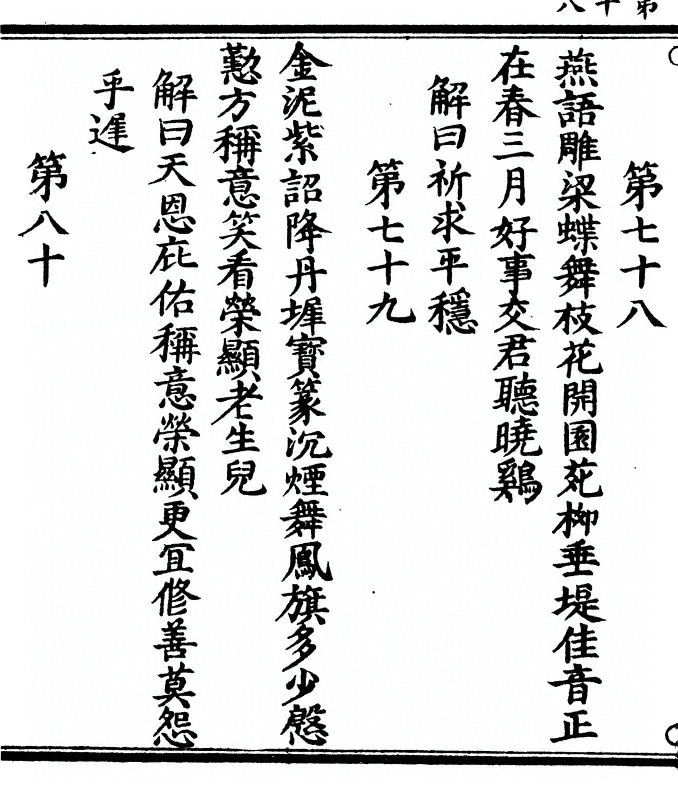 第十八
第七十八
燕語雕梁蝶舞枝花開園苑柳垂堤佳音正
在春三月好事交君聽曉鷄
解曰祈求平穩
第七十九
金泥紫詔降丹墀寶篆沉煙舞鳳旗多少慇
懃方稱意笑看榮顯老生兒
解曰天恩庇佑稱意榮顯更宜修善莫怨
乎遲
第八十